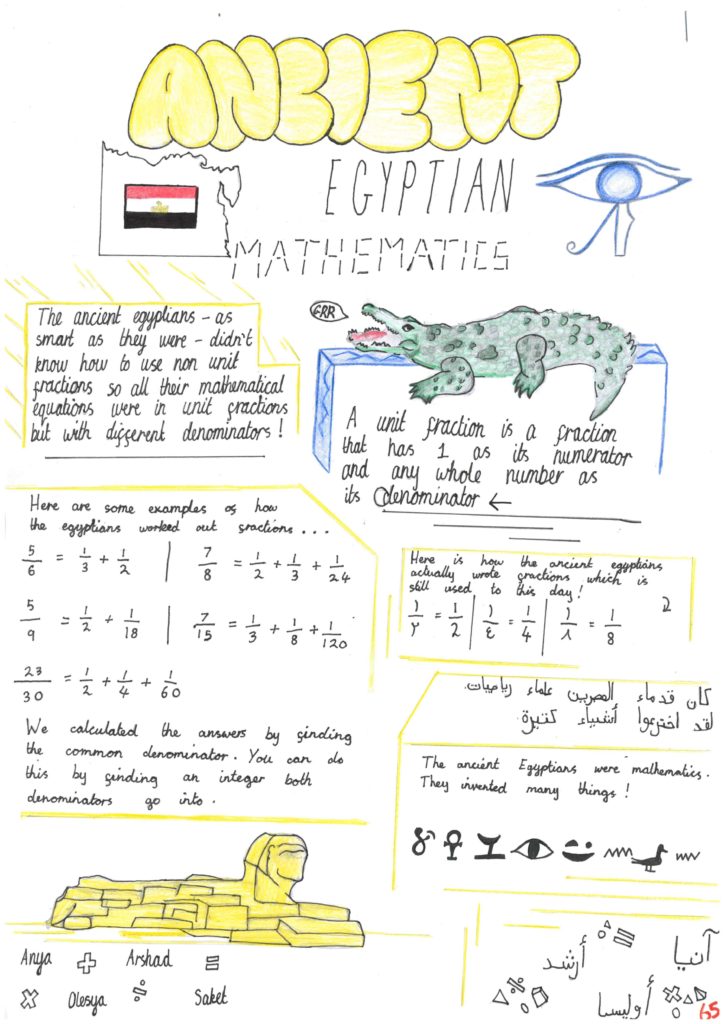 ANCIENT
EGYPTIAN
MATHEMATICS
The ancient egyptians – as
smart as they were – didn't
know how to use non unit
fractions so all their mathematical
equations were in unit fractions
but with different denominators !
GRR
A unit fraction is a fraction
that has 1 as its numerator
and any whole number as
its denominator ←
Here are some examples of how
the egyptians worked out fractions . . .
5/6 = 1/3 + 1/2 | 7/8 = 1/2 + 1/3 + 1/24
5/9 = 1/2 + 1/18 | 7/15 = 1/3 + 1/8 + 1/120
23/30 = 1/2 + 1/4 + 1/60
We calculated the answers by finding
the common denominator. You can do
this by finding an integer both
denominators go into.
Here is how the ancient egyptians
actually wrote fractions which is
still used to this day!
١/٢ = 1/2 | ١/٤ = 1/4 | ١/٨ = 1/8
كان قدماء المصرين علماء رياضيات.
لقد اخترعوا أشياء كثيرة.
The ancient Egyptians were mathematics.
They invented many things !
Anya + Arshad =
× Olesya ÷ Saket
آنيا
أرشد
أوليسا